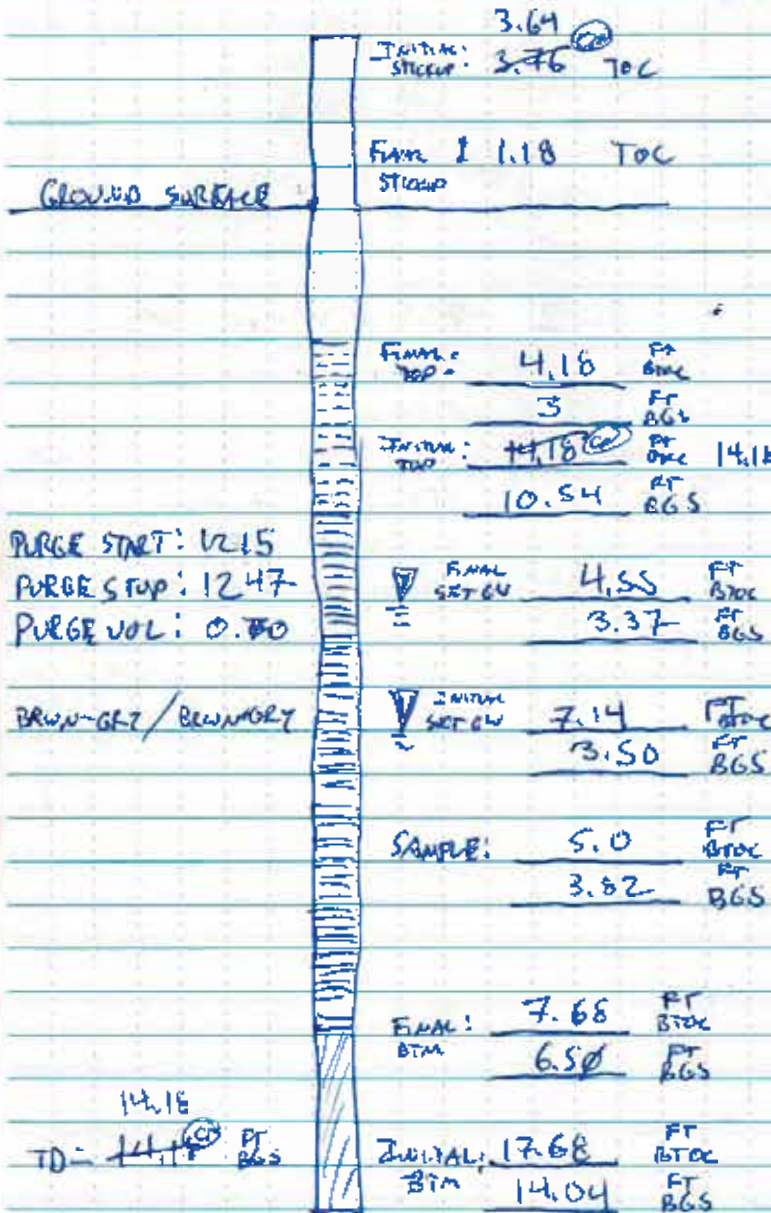 3.64
INITIAL: STICKUP: 3.76 TOC
FINAL STICKUP 1.18 TOC
GROUND SURFACE
FINAL: TOP - 4.18 FT BTOC
3 FT BGS
INITIAL: TOP 14.18 FT BTOC 14.18
10.54 FT BGS
PURGE START: 1215
PURGE STOP: 1247
FINAL SET GW 4.55 FT BTOC
PURGE VOL: 0.70
3.37 FT BGS
BRWN-GRY/BRWN-GRY
INITIAL SET GW 7.14 FT BTOC
3.50 FT BGS
SAMPLE: 5.0 FT BTOC
3.82 FT BGS
FINAL: BTM 7.68 FT BTOC
6.50 FT BGS
14.18
TD- FT BGS
INITIAL: BTM 17.68 FT BTOC
14.04 FT BGS